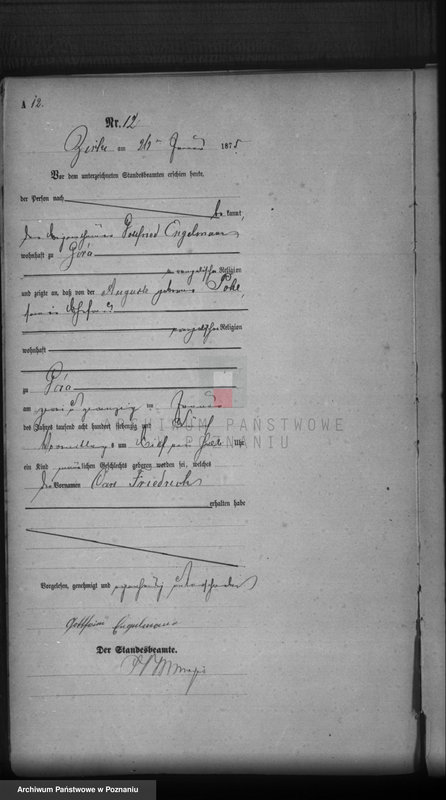 A 12.
Nr. 12
Zirke am 1875
Vor dem unterzeichneten Standesbeamten erschien heute,
der Person nach bekannt,
der Eigenthümer Gottfried Engelmann,
wohnhaft zu Góra
evangelischer Religion
und zeigte an, daß von der Auguste geborene
seiner Ehefrau
evangelischer Religion
wohnhaft
zu Góra
am zwei zwanzig ten Januar
des Jahres tausend acht hundert siebenzig und fünf
Vormittags um ein halb Uhr
ein Kind männlichen Geschlechts geboren worden sei, welches
die Vornamen Carl Friedrich
erhalten habe
ARCHIWUM PAŃSTWOWE
W POZNANIU
Vorgelesen, genehmigt und eigenhändig unterschrieben
Gottfried Engelmann
Der Standesbeamte.
Archiwum Państwowe w Poznaniu